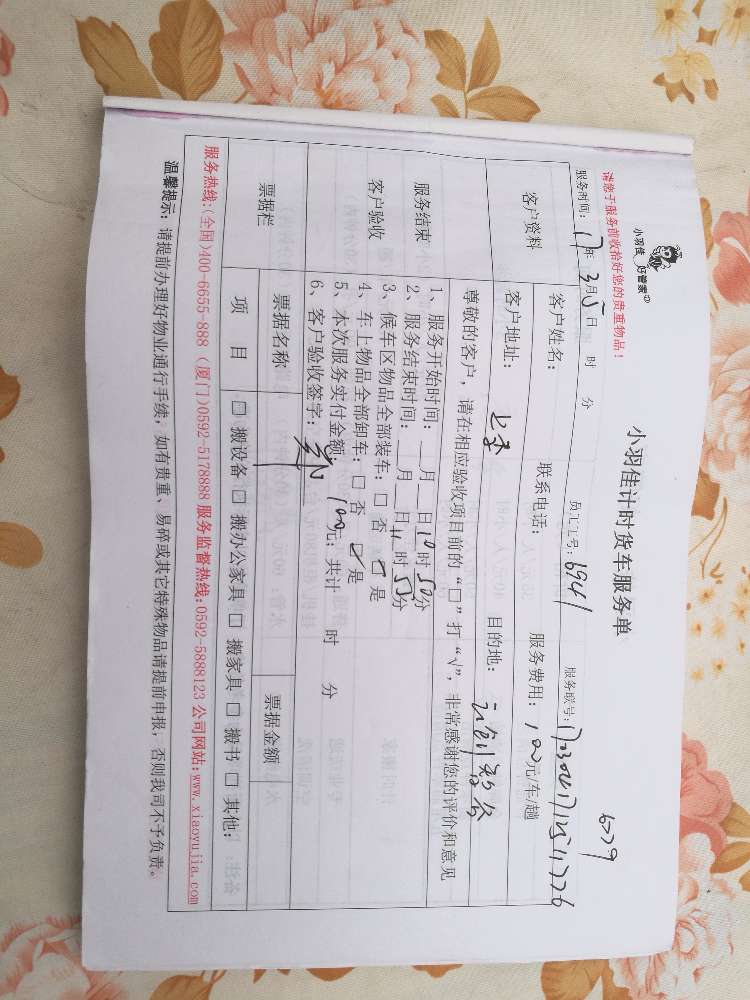 小羽佳 好管家
请您于服务前收拾好您的贵重物品！
小羽佳计时货车服务单
6079
服务时间： 17年 3月 5日 时 分 员工工号：6941 服务联号：
客户资料
客户姓名： 联系电话： 服务费用：100元/车/趟
客户地址： 目的地：
尊敬的客户，请在相应验收项目前的“□”打“√”，非常感谢您的评价和意见
服务结束
客户验收
1、服务开始时间：__月__日10时50分
2、服务结束时间：__月__日11时50分
3、候车区物品全部装车：□ 否 □ 是
4、车上物品全部卸车：□ 否 □ 是
5、本次服务实付金额 100元；共计 时 分
6、客户验收签字：
票据栏 票据名称 票据金额
项 目 □ 搬设备 □ 搬办公家具 □ 搬家具 □ 搬书 □ 其他：
服务热线：(全国)400-6655-888 (厦门)0592-5178888 服务监督热线：0592-5888123 公司网站：www.xiaoyujia.com
温馨提示：请提前办理好物业通行手续，如有贵重、易碎或其它特殊物品请提前申报，否则我司不予负责。